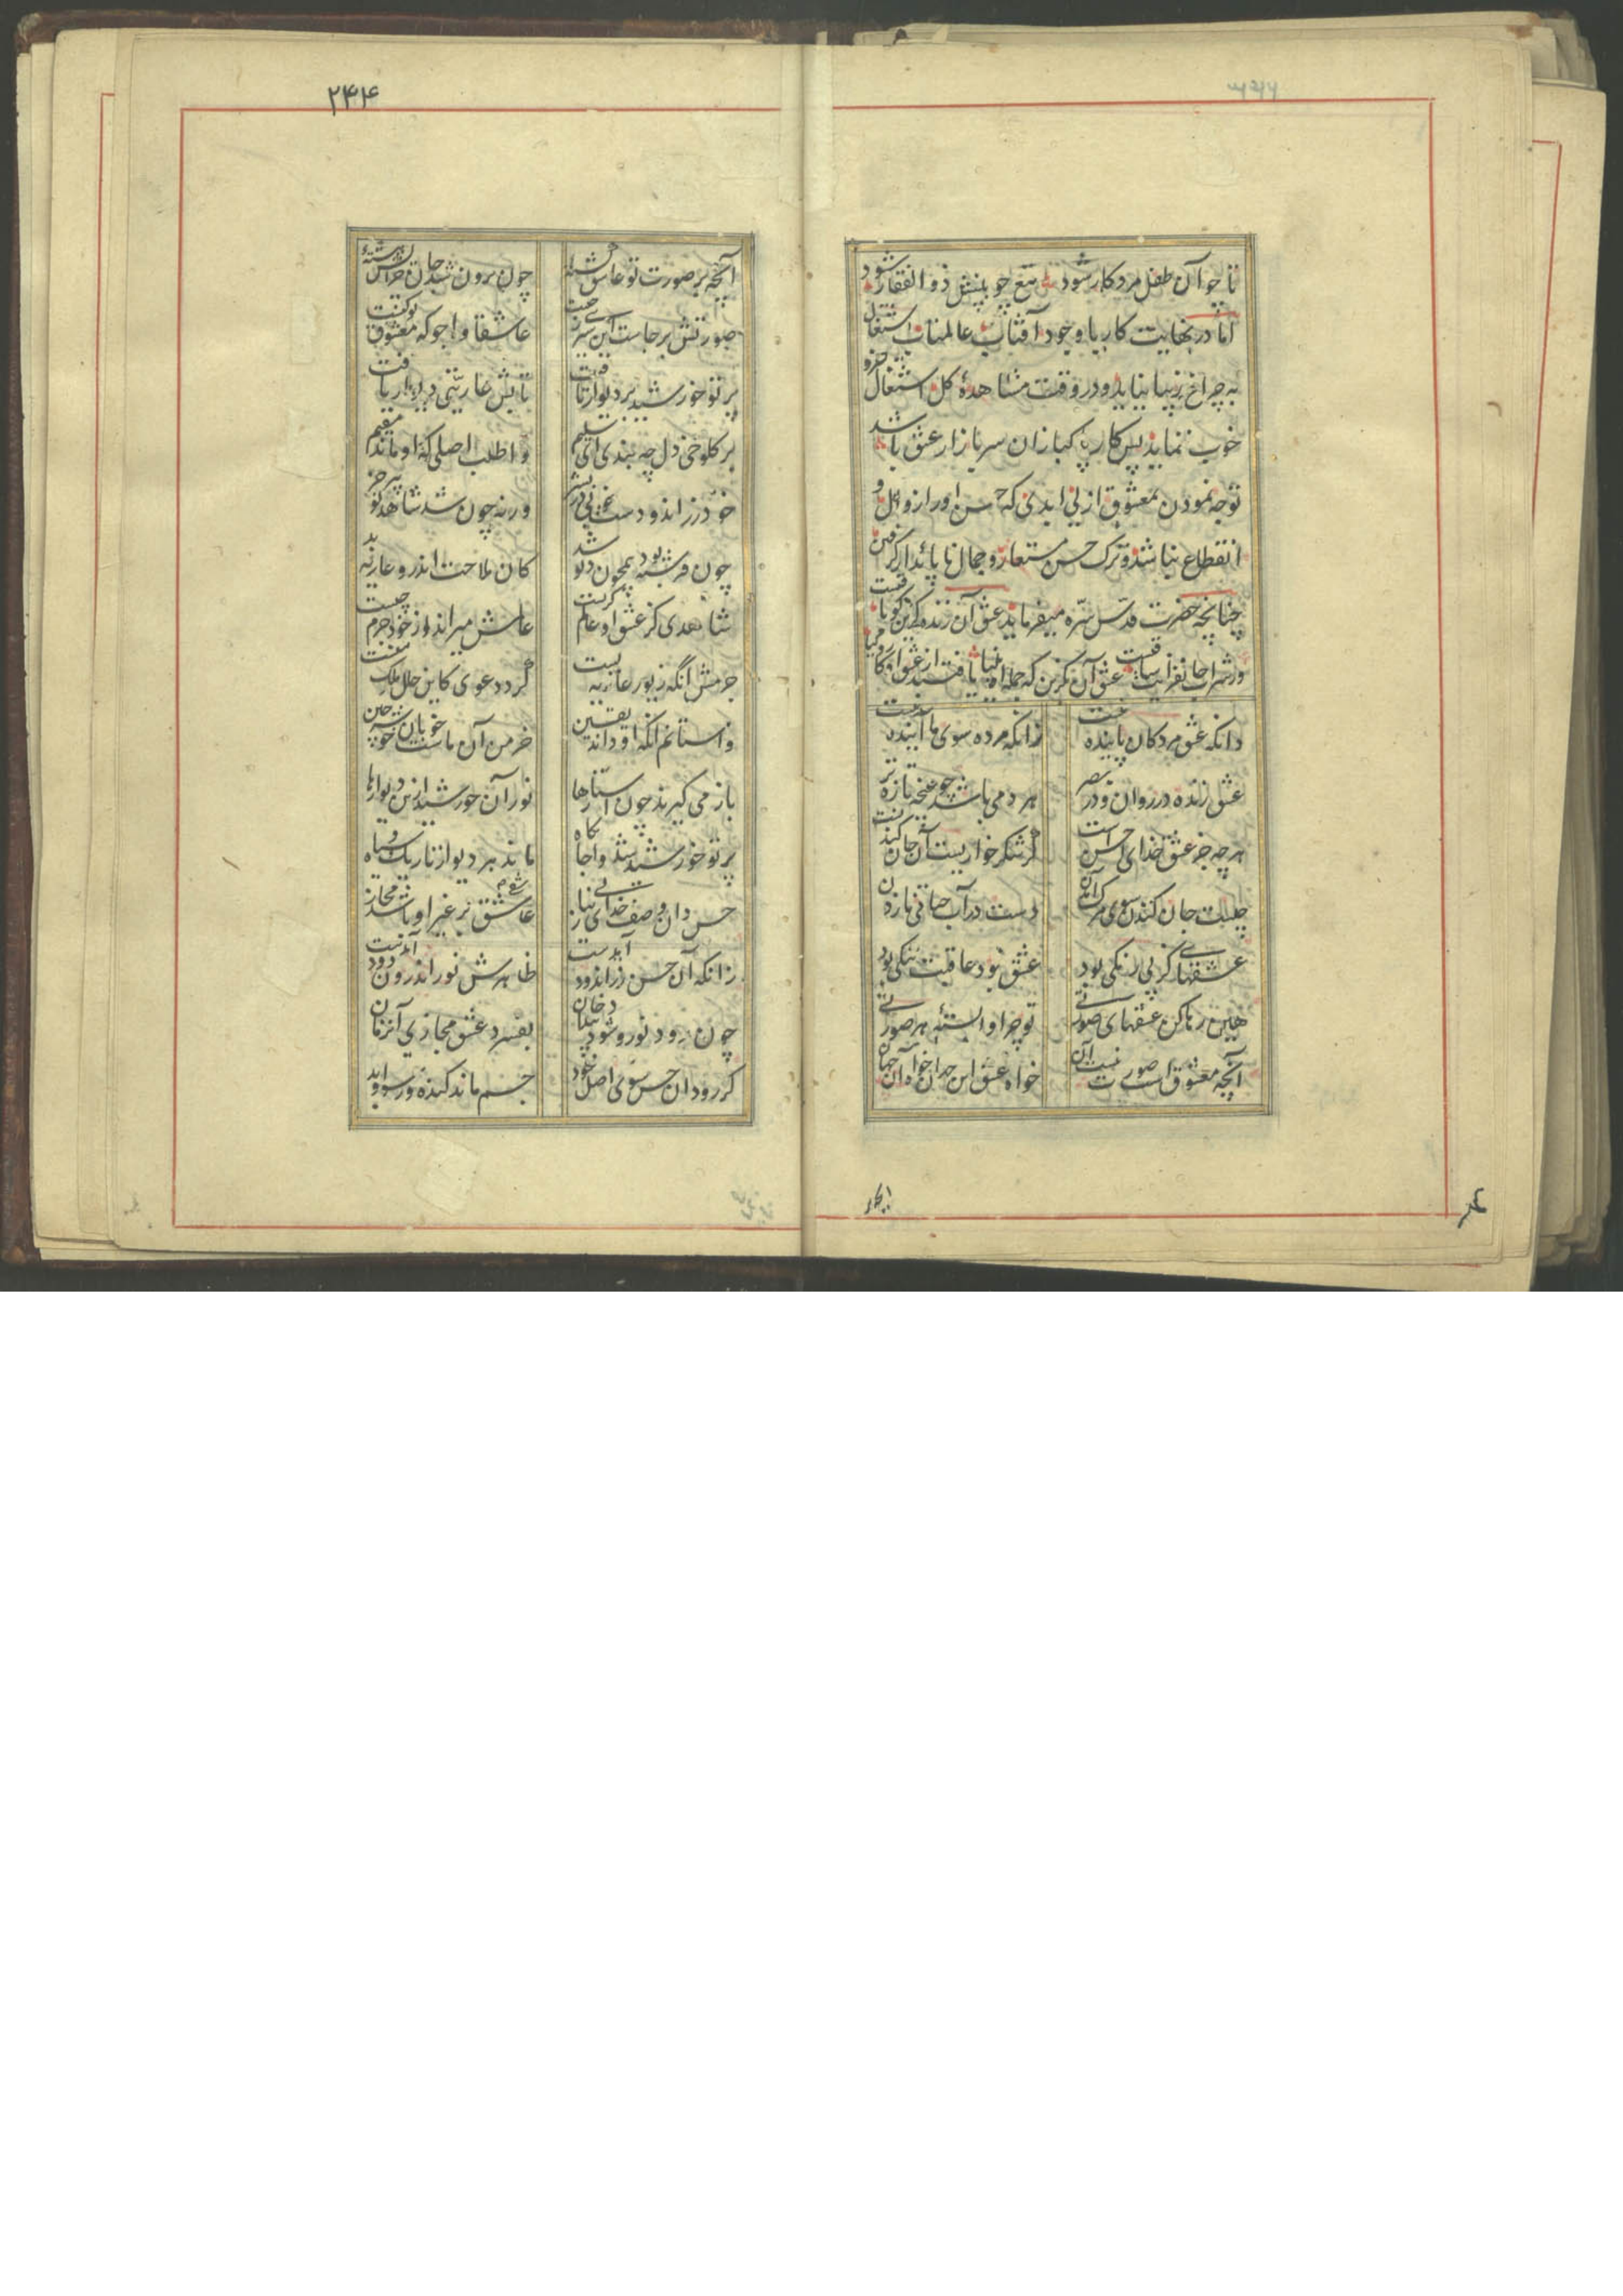 تا چو آن طفل مرد کار شود تیغ چوبینش ذو الفقار شود
اما در نهایت کار با وجود آفتاب عالمتاب اشتغال
به چراغ زیبا ننماید و در وقت مشاهدهٔ کل اشتغال جزو
خوب ننماید پس کار پاکبازان سر بازار عشق باشد
توجه نمودن بمعشوق ازلی ابدی که حسن او را زوال و
انقطاع نباشد و ترک حسن مستعار و جمال ناپائدار گرفتن
چنانچه حضرت قدس سره میفرماید عشق آن زنده گزین کو باقیست
وز شراب جانفزایت ساقیست عشق آن بگزین که جمله انبیا یافتند از عشق او کار و کیا
دانکه عشق مردکان پاینده نیست
زانکه مرده سوی ما آینده نیست
عشق زنده در روان و در بصر
هر دمی باشد چو غنچه تازه تر
هر چه جز عشق خدای احسن است
گر شکر خواریست آن جان کندنست
چیست جان کندن سوی مرگ آمدن
دست در آب حیاتی نازدن
عشقهایی کز پی رنگی بود
عشق نبود عاقبت ننگی بود
هین رها کن عشقهای صورتی
تو چرا وابستهٔ هر صورتی
آنچه معشوق است صورت نیست آن
خواه عشق این جهان خواه آن جهان
۲۴۴
آنچه بر صورت تو عاشق گشتهٔ
چون برون شد جان چرایش هشتهٔ
صورتش بر جاست این سیری ز چیست
عاشقا وا جو که معشوق تو کیست
پرتو خورشید بر دیوار تافت
تابش عاریتی دیوار یافت
بر کلوخی دل چه بندی ای سلیم
وا طلب اصلی که او ماند مقیم
خود زر اندودست خوبی در بشر
ورنه چون شد شاهد تو پیر خر
چون فرشته بود همچون دیو شد
کان ملاحت اندرو عاریه بد
شاهدی کز عشق او عالم گریست
عالمش میراند از خود جرم چیست
جرمش آنکه زیور عاریه بست
کرد دعوی کاین حلل ملک منست
واستانم آنکه تا داند یقین
خرمن آن ماست خوبان خوشه چین
باز می گیرند چون استارها
نور آن خورشید ازین دیوارها
پرتو خورشید شد وا جایگاه
ماند هر دیوار تاریک و سیاه
حسن دان وصف خدای بی نیاز
عاشقی بر غیر او باشد مجاز
زانکه آن حسن زر اندود آمدست
ظاهرش نور اندرون دود آمدست
چون رود نور و شود پیدا دخان
بفسرد عشق مجازی آنزمان
گر رود آن حسن سوی اصل خود
جسم ماند گنده و رسوا و بد